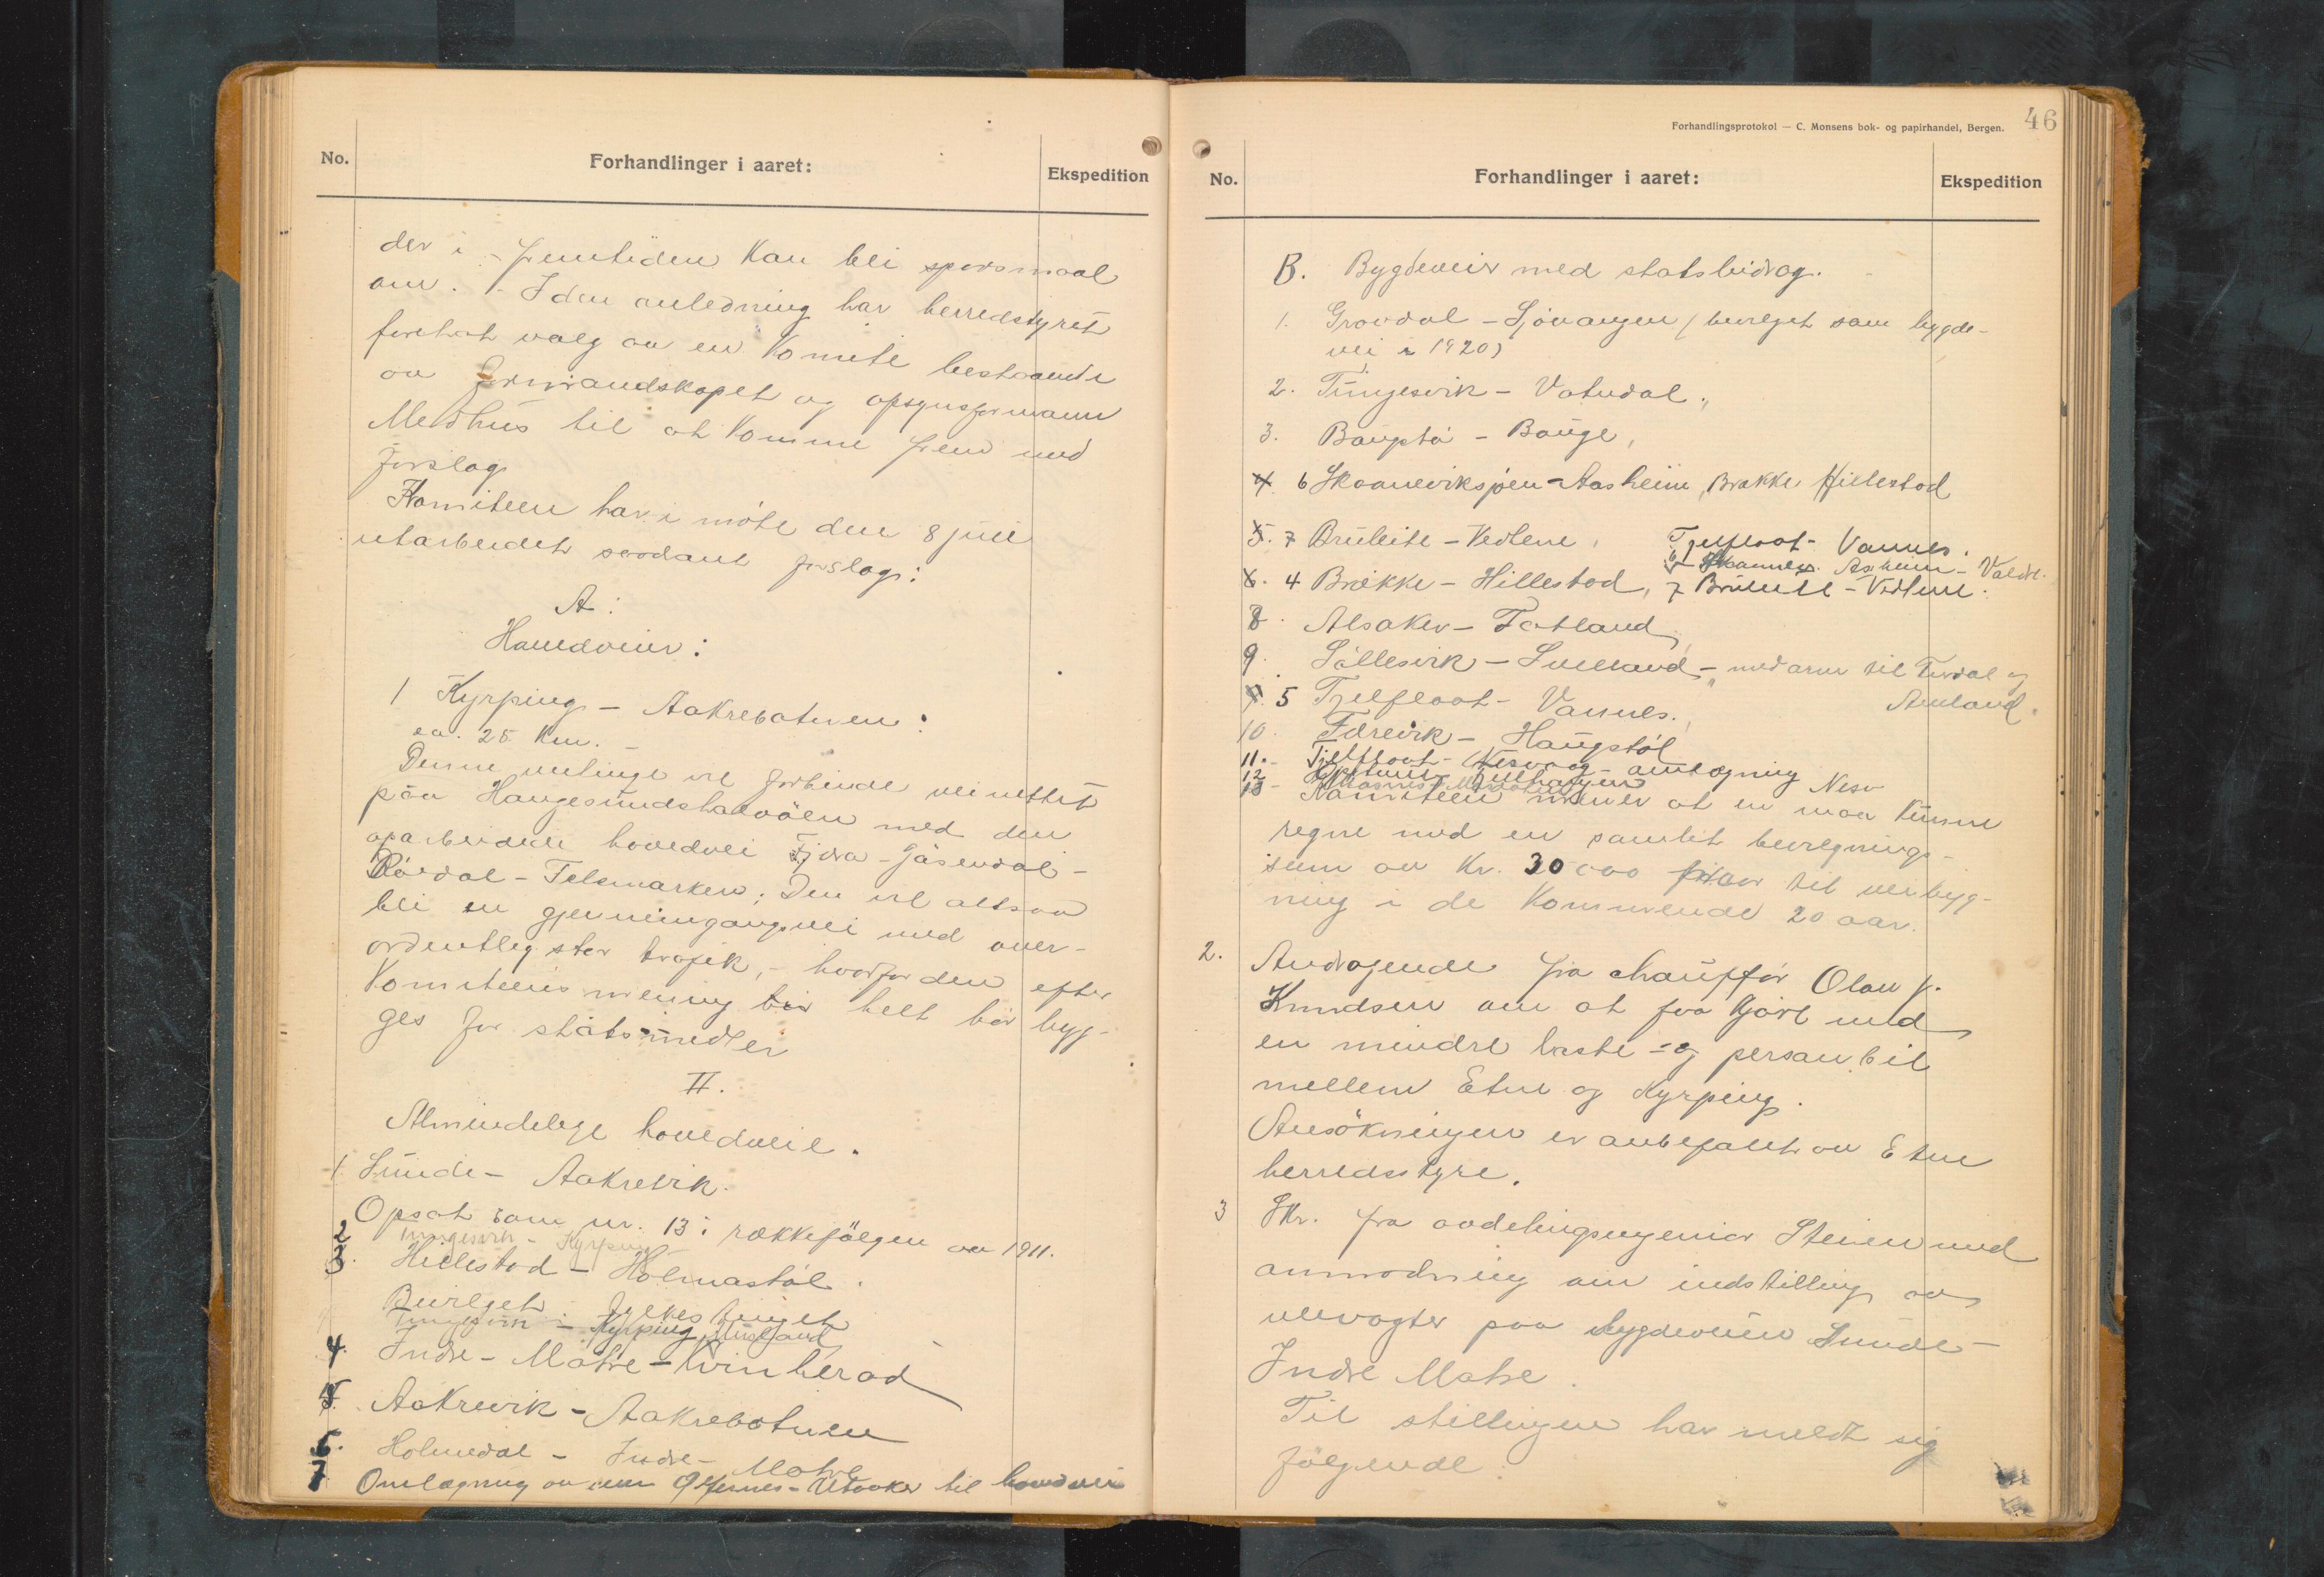 No.
Forhandlinger i aaret:
Ekspedition
der i fremtiden kan bli spørsmaal
om. - I den anledning har herredstyret
foretat valg av en komite bestaaende
av formandskapet og opsynsformann
Medhus til at komme frem med
forslag
Komiteen har i møte den 8 juli
utarbeidet saadant forslag:
A:
Hovedveier:
1 Kyrping - Aakrebotnen:
ca. 25 km. -
Denne veilinje vil forbinde veinettet
paa Haugesundshalvöen med den
oparbeidede hovedvei Fjæra - Jösendal -
Röldal - Telemarken; Den vil altsaa
bli en gjennemgangsvei med over-
ordentlig stor trafik, - hvorfor den efter
komiteens mening bör helt bör byg-
ges for statsmidler
II.
Almindelige hovedveie.
1. Sunde - Aakrevik.
Opsat som nr. 13 i rækkefölgen av 1911.
2 Tungesvik - Kyrping
3. Hillestad - Holmastöl.
Bevilget. fylkestinget
Tungesvik - Kyrping
4. Indre - Matre - Kvinherad
5. Aakrevik - Aakrebotnen
6. Holmedal - Indre - Matre
7 Omlægning av veien Ølfernes - Utaaker til hovedvei
Forhandlingsprotokol — C. Monsens bok- og papirhandel, Bergen.
46
No.
Forhandlinger i aaret:
Ekspedition
B. Bygdeveir med statsbidrag.
1. Grovdal - Sjövangen (bevilget som bygde-
vei i 1920)
2. Tungesvik - Vatndal.
3. Baugstö - Bauge,
4. 6 Skaaneviksjöen - Aasheim, Brække Hillestad
5. 7 Bruleite - Vedlene. Tjelflaat - Vannes.
6 Skaanev. Asheim - Valdr.
6. 4 Brække - Hillestad, 7 Bruleite - Vedlene.
8. Alsaker - Fatland,
9. Söllesvik - Sveeland - med arm til Tverdal og
Amland.
7. 5 Tjelflaat - Vannes.
10. Færevik - Haugstöl
11. - Tjelflaat - Nesvaag - omlægning Nesv
12
13 - Komiteen mener at en maa kunne
regne med en samlet bevilgnings-
sum av kr. 30 000 pr aar til veibyg-
ning i de kommende 20 aar.
2. Andragende fra chauffør Olav K.
Knudsen om at faa kjöre med
en mindre laste- og personbil
mellem Etne og Kyrping.
Ansökningen er anbefalt av Etne
herredsstyre.
3 Skr. fra avdelingsingeniør Steien med
anmodning om indstilling av
veivogter paa bygdeveien Sunde -
Indre Matre.
Til stillingen har meldt sig
følgende: